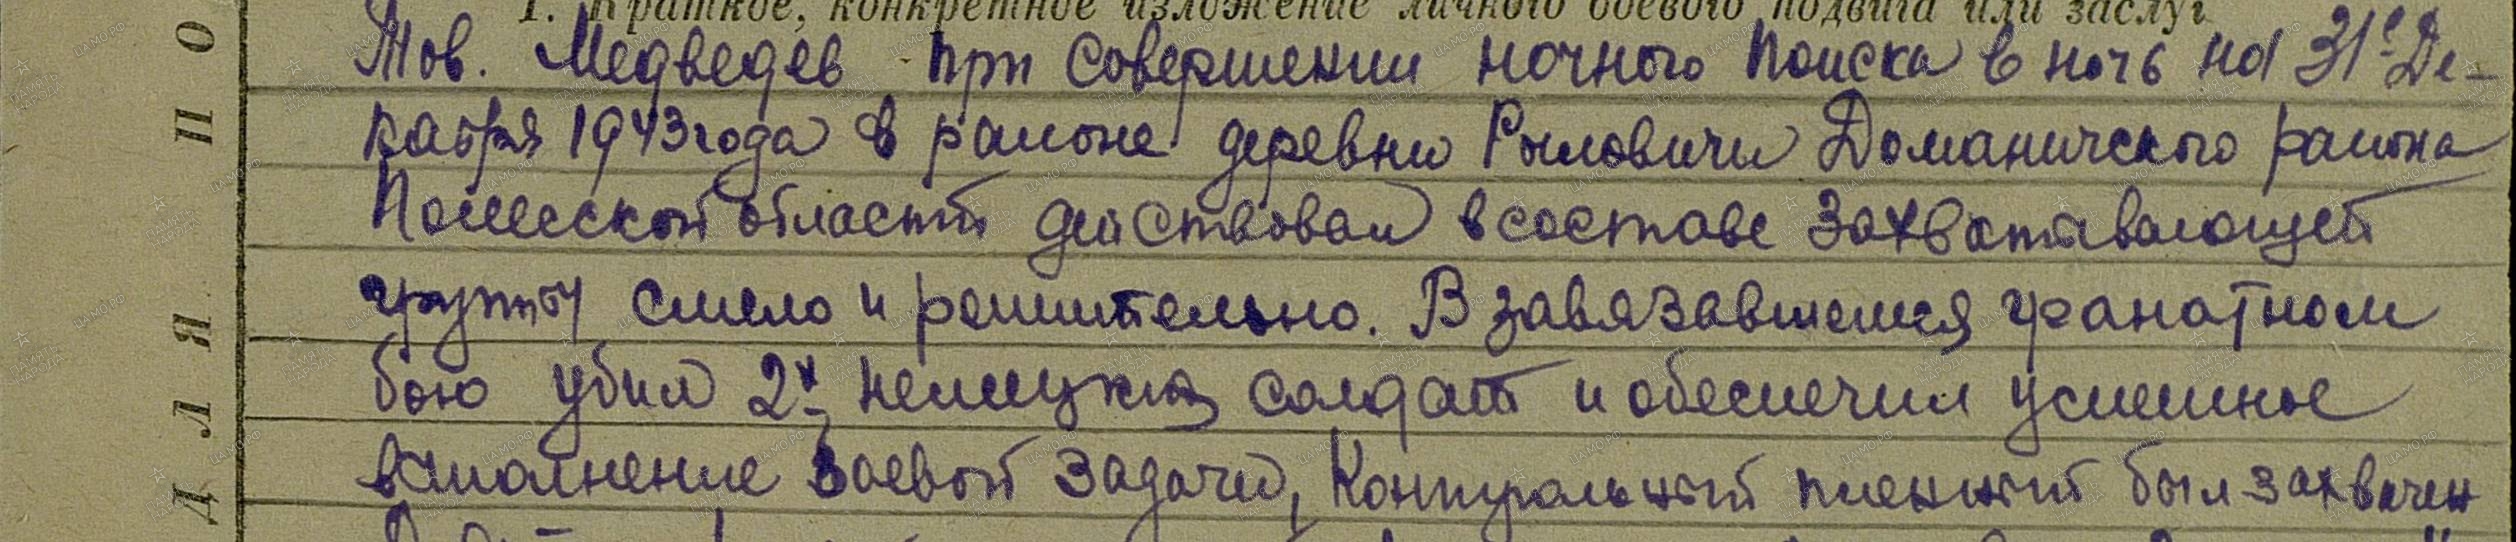 1. Краткое, конкретное изложение личного боевого подвига или заслуг
Тов. Медведев при совершении ночного поиска в ночь на 31е Де-
кабря 1943 года в районе деревни Рыловичи Доманичского района
Полесской области действовал в составе захватывающей
группы смело и решительно. В завязавшемся гранатном
бою убил 2х немецких солдат и обеспечил успешное
выполнение боевой задачи, Контрольный пленный был захвачен
ДЛЯ ПО